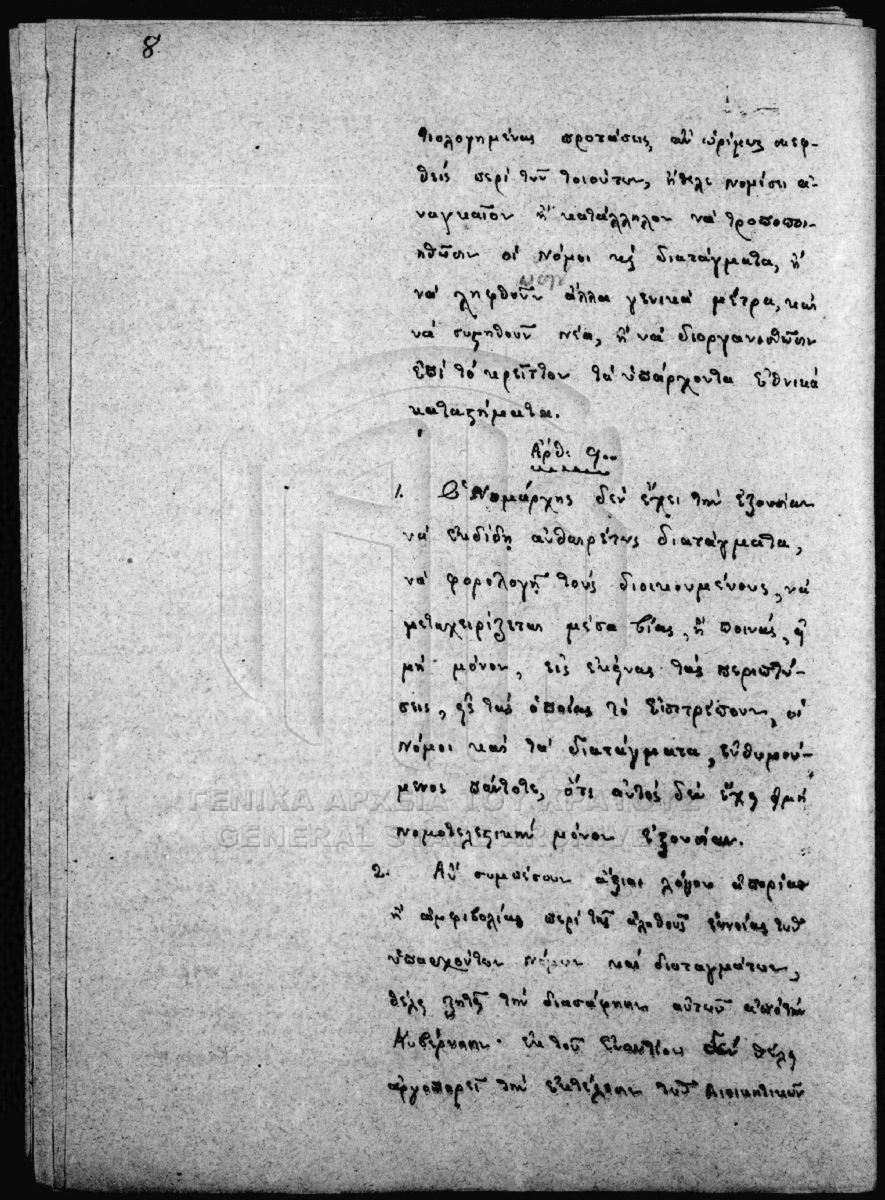 8
τιολογημένας προτάσεις, ἂν ὡρίμως σκεφ-
θεὶς περὶ τῶν τοιούτων, ἤθελε νομίσει ἀ-
ναγκαῖον ἢ κατάλληλον νὰ τροποποι-
ηθῶσιν οἱ νόμοι καὶ διατάγματα, ἢ
νὰ ληφθοῦν ἄλλα γενικὰ μέτρα, καὶ
νὰ συστηθοῦν νέα, ἢ νὰ διοργανισθῶσιν
ἐπὶ τὸ κρεῖττον τὰ ὑπάρχοντα ἐθνικὰ
καταστήματα.
Ἄρθ: 9..
1. Ὁ Νομάρχης δὲν ἔχει τὴν ἐξουσίαν
νὰ ἐκδίδῃ αὐθαιρέτως διατάγματα,
νὰ φορολογῇ τοὺς διοικουμένους, νὰ
μεταχειρίζεται μέσα βίας, ἢ ποινάς, εἰ
μὴ μόνον, εἰς ἐκείνας τὰς περιπτώ-
σεις, εἰς τὰς ὁποίας τὸ ἐπιτρέπουν, οἱ
νόμοι καὶ τὰ διατάγματα, ἐνθυμού-
μενος πάντοτε, ὅτι αὐτὸς δὲν ἔχει εἰμὴ
νομοτελεστικὴν μόνον ἐξουσίαν.
2. Ἂν συμπέσουν ἄξιαι λόγου ἀπορίαι
ἢ ἀμφιβολίαι περὶ τῆς ἀληθοῦς ἐννοίας τῶν
ὑπαρχόντων νόμων καὶ διαταγμάτων,
θέλει ζητεῖ τὴν διασάφησιν αὐτῶν ἀπὸ τὴν
Κυβέρνησιν· ἐκ τοῦ ἐναντίου δὲν θέλει
ἀργοπορεῖ τὴν ἐκτέλεσιν τῶν διοικητικῶν
ΓΕΝΙΚΑ ΑΡΧΕΙΑ ΤΟΥ ΚΡΑΤΟΥΣ
GENERAL STATE ARCHIVES